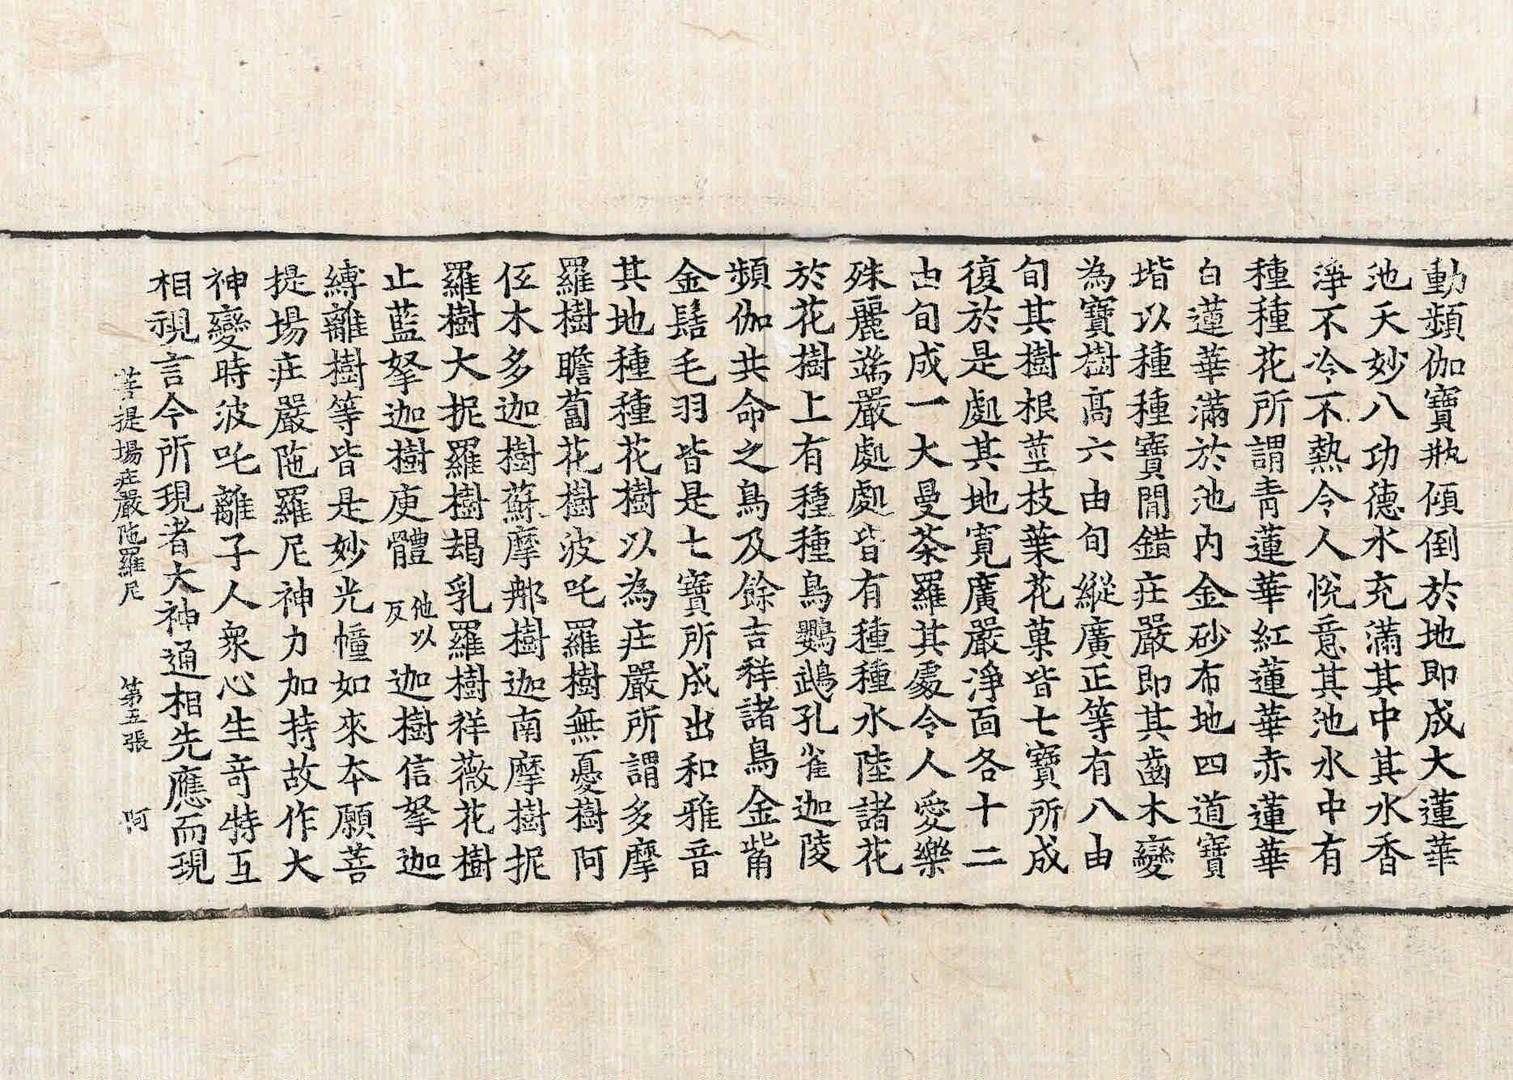 動頻伽寶瓶傾倒於地即成大蓮華
池天妙八功德水充滿其中其水香
淨不冷不熱令人悅意其池水中有
種種花所謂青蓮華紅蓮華赤蓮華
白蓮華滿於池內金砂布地四道寶
堦以種種寶間錯庄嚴即其齒木變
為寶樹高六由旬縱廣正等有八由
旬其樹根莖枝葉花菓皆七寶所成
復於是處其地寬廣嚴淨面各十二
由旬成一大曼荼羅其處令人愛樂
殊麗端嚴處處皆有種種水陸諸花
於花樹上有種種鳥鸚鵡孔雀迦陵
頻伽共命之鳥及餘吉祥諸鳥金觜
金髻毛羽皆是七寶所成出和雅音
其地種種花樹以為庄嚴所謂多摩
羅樹瞻蔔花樹波吒羅樹無憂樹阿
伍木多迦樹蘇摩那樹迦南摩樹抳
羅樹大抳羅樹朅乳羅樹祥薇花樹
止藍拏迦樹庾體他以反迦樹信拏迦
縛離樹等皆是妙光幢如來本願菩
提場庄嚴陁羅尼神力加持故作大
神變時波吒離子人衆心生竒特互
相視言今所現者大神通相先應而現
菩提場庄嚴陁羅尼 第五張 阿